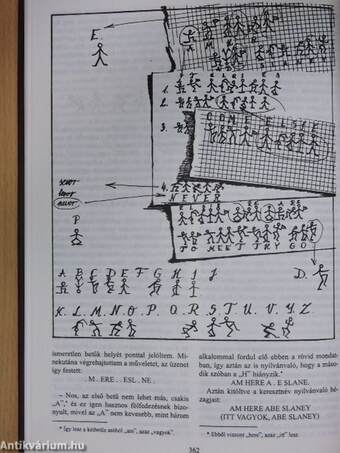 E.
1.
2.
3.
COM ELSIE
4.
NEVER
P
TO MEET THY GO
D.
A B C D E F G H I J
K. L. M. N. O. P. Q. R. S. T. U. V. Y. Z
ismeretlen betűk helyét ponttal jelöltem. Mi-
nekutána végrehajtottam a műveletet, az üzenet
így festett:
. M . ERE . . ESL . NE .
– Nos, az első betű nem lehet más, csakis
„A”,* és ez igen hasznos fölfedezésnek bizo-
nyult, mivel az „A” nem kevesebb, mint három
* Így lesz a kétbetűs szóból „am”, azaz „vagyok”.
alkalommal fordul elő ebben a rövid mondat-
ban, így aztán az is nyilvánvaló, hogy a máso-
dik szóban a „H” hiányzik.*
AM HERE A . E SLANE.
Aztán kitöltve a keresztnév nyilvánvaló hé-
zagjait:
AM HERE ABE SLANEY
(ITT VAGYOK, ABE SLANEY)
* Ebből viszont „here”, azaz „itt” lesz.
362
Antikvárium.hu